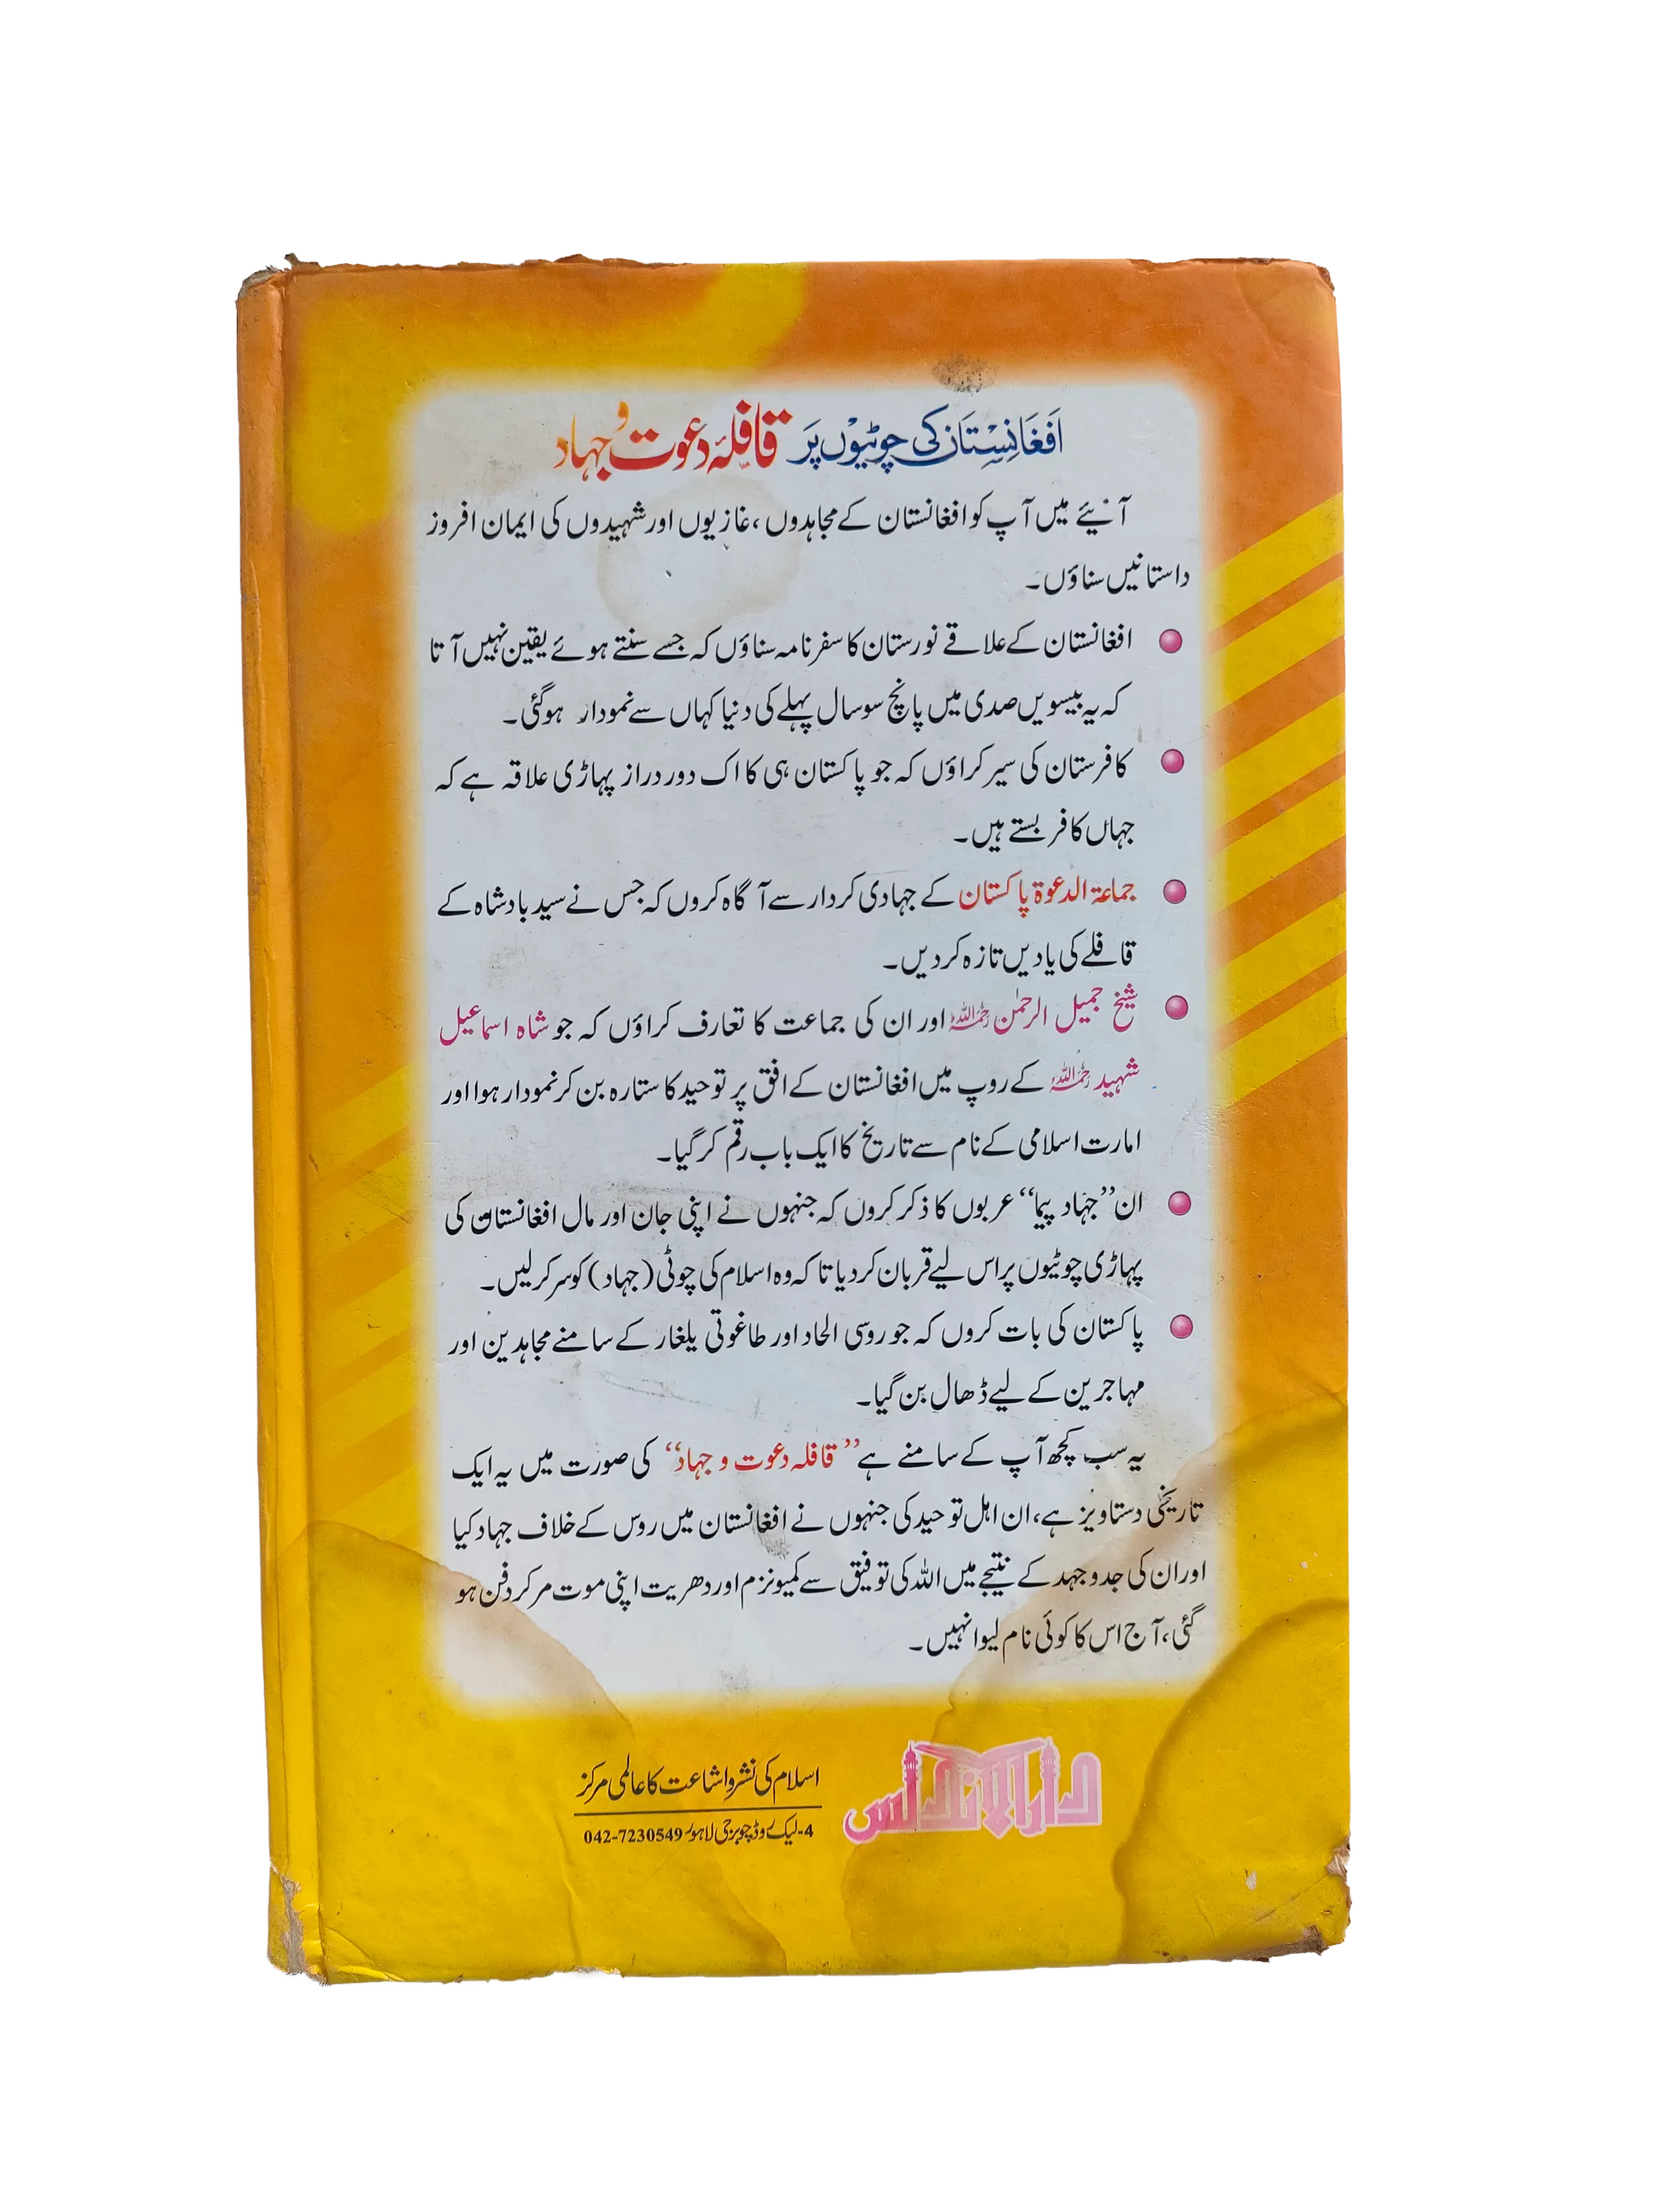 افغانستان کی چوٹیوں پر قافلۂ دعوت و جہاد
آئیے میں آپ کو افغانستان کے مجاہدوں، غازیوں اور شہیدوں کی ایمان افروز
داستانیں سناؤں۔
افغانستان کے علاقے نورستان کا سفر نامہ سناؤں کہ جسے سنتے ہوئے یقین نہیں آتا
کہ یہ بیسویں صدی میں پانچ سو سال پہلے کی دنیا کہاں سے نمودار ہوگئی۔
کافرستان کی سیر کراؤں کہ جو پاکستان ہی کا اک دور دراز پہاڑی علاقہ ہے کہ
جہاں کافر بستے ہیں۔
جماعۃ الدعوۃ پاکستان کے جہادی کردار سے آگاہ کروں کہ جس نے سید بادشاہ کے
قافلے کی یادیں تازہ کر دیں۔
شیخ جمیل الرحمٰن رحمہ اللہ اور ان کی جماعت کا تعارف کراؤں کہ جو شاہ اسماعیل
شہید رحمہ اللہ کے روپ میں افغانستان کے افق پر توحید کا ستارہ بن کر نمودار ہوا اور
امارت اسلامی کے نام سے تاریخ کا ایک باب رقم کر گیا۔
ان ”جہاد پیما“ عربوں کا ذکر کروں کہ جنہوں نے اپنی جان اور مال افغانستان کی
پہاڑی چوٹیوں پر اس لیے قربان کر دیا تا کہ وہ اسلام کی چوٹی (جہاد) کو سر کر لیں۔
پاکستان کی بات کروں کہ جو روسی الحاد اور طاغوتی یلغار کے سامنے مجاہدین اور
مہاجرین کے لیے ڈھال بن گیا۔
یہ سب کچھ آپ کے سامنے ہے ”قافلہ دعوت و جہاد“ کی صورت میں یہ ایک
تاریخی دستاویز ہے، ان اہل توحید کی جنہوں نے افغانستان میں روس کے خلاف جہاد کیا
اور ان کی جدوجہد کے نتیجے میں اللہ کی توفیق سے کمیونزم اور دھریت اپنی موت مر کر دفن ہو
گئی، آج اس کا کوئی نام لیوا نہیں۔
دارالاندلس
اسلام کی نشر و اشاعت کا عالمی مرکز
4-لیک روڈ چوبرجی لاہور 042-7230549